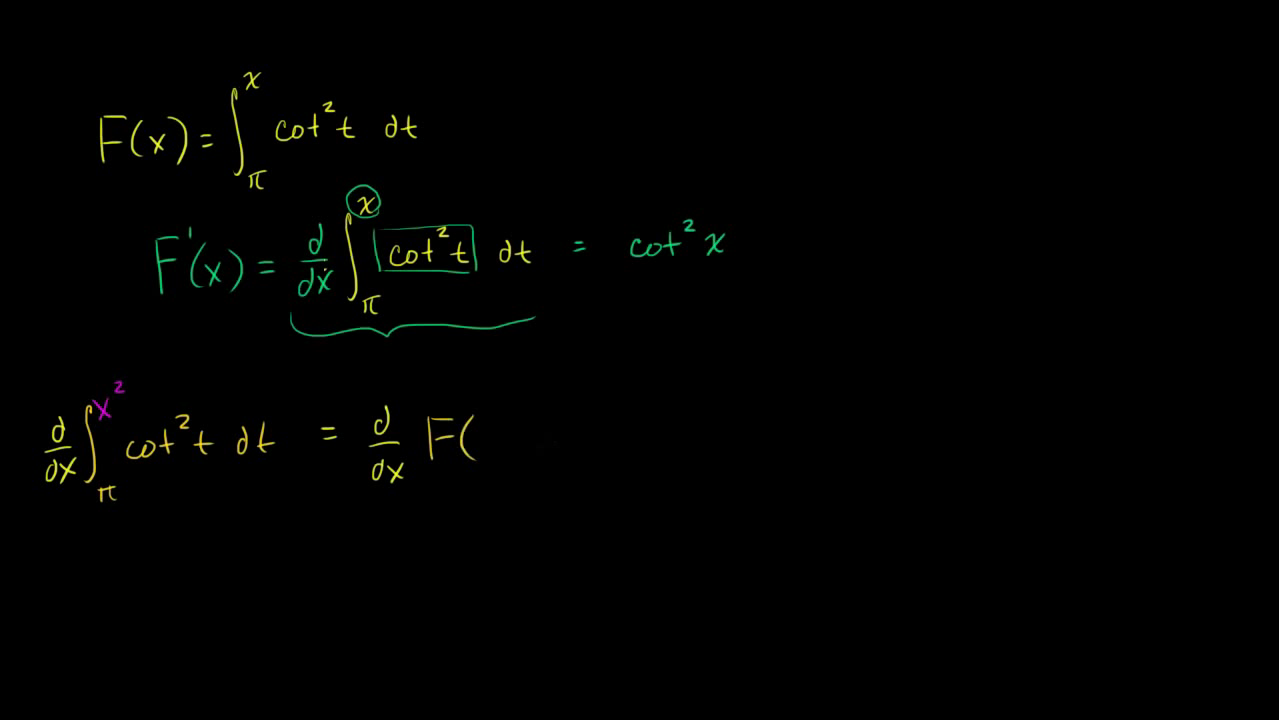 F(x) = ∫_π^x cot² t dt
F'(x) = d/dx ∫_π^x cot² t dt = cot² x
d/dx ∫_π^x² cot² t dt = d/dx F(